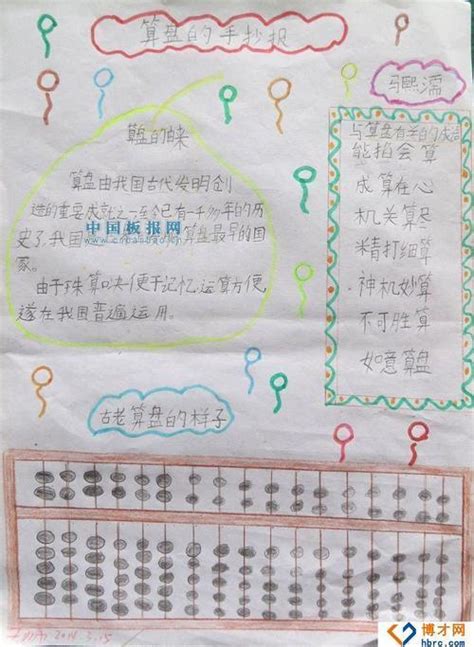 算盘的手抄报
马熙濡
算盘的由来
算盘由我国古代发明创
造的重要成就之一至今已有一千多年的历
史了,我国 算盘最早的国
家。
由于珠算口诀便于记忆,运算方便,
遂在我国普遍运用。
中国板报网
与算盘有关的成语
能拍会算
成算在心
机关算尽
精打细算
神机妙算
不可胜算
如意算盘
古老算盘的样子
3.15
博才网
hbrc.com